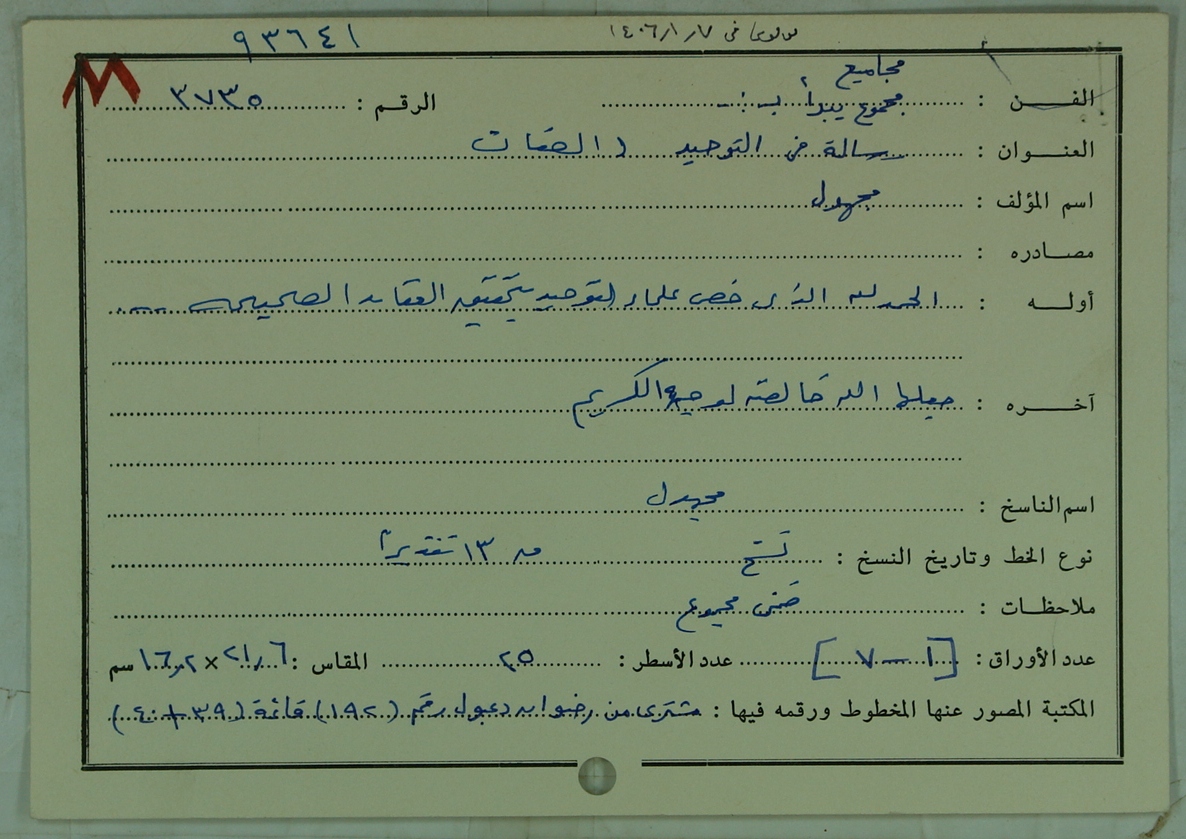 ٩٣٦٤١ في ١٤٠٦/١/٧
مجاميع
الفن : مجموع يبدأ بـ :ـ الرقم : ٣٧٣٥
العنوان : رسالة في التوحيد ( الصفات
اسم المؤلف : مجهول
مصادره :
أوله : الحمد لله الذي خص علماء التوحيد بتحقيق العقائد الصحيحة ...
آخره : جعلها الله خالصة لوجهه الكريم
اسم الناسخ : مجهول
نوع الخط وتاريخ النسخ : نسخ ق ١٣ تقديراً
ملاحظات : ضمن مجموع
عدد الأوراق : [ ١ — ٧ ] عدد الأسطر : ٢٥ المقاس : ٢١,٦ × ١٦,٢ سم
المكتبة المصور عنها المخطوط ورقمه فيها : مشترى من رضوان دعبول رقم (١٩٢) قائمة (٣٩ + ٤٠)